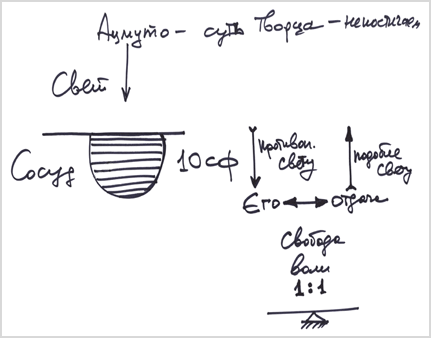 Ацмуто - суть Творца - непостигаем
Свет
Сосуд
10 сф
противоп. свету
подобие свету
Эго
отдача
Свобода
воли
1:1